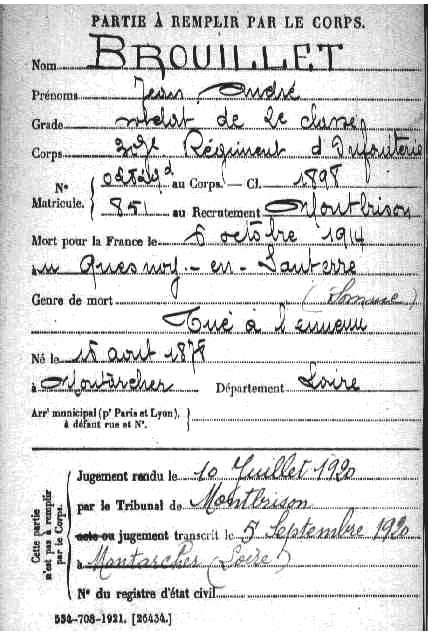 PARTIE À REMPLIR PAR LE CORPS.
Nom BROUILLET
Prénoms Jean André
Grade soldat de 2e classe
Corps Régiment d'Infanterie
N° Matricule. { au Corps. — Cl. 1898
851 au Recrutement Montbrison
Mort pour la France le octobre 1914
au Quesnoy-en-Santerre
Genre de mort (Somme)
Tué à l'ennemi
Né le août 1878
à Montarcher Département Loire
Arr¹ municipal (p¹ Paris et Lyon), à défaut rue et N°. }
Cette partie n'est pas à remplir par le Corps.
Jugement rendu le 10 Juillet 1920
par le Tribunal de Montbrison
acte ou jugement transcrit le 5 Septembre 1920
à Montarcher (Loire)
N° du registre d'état civil
534-708-1921. [26434.]